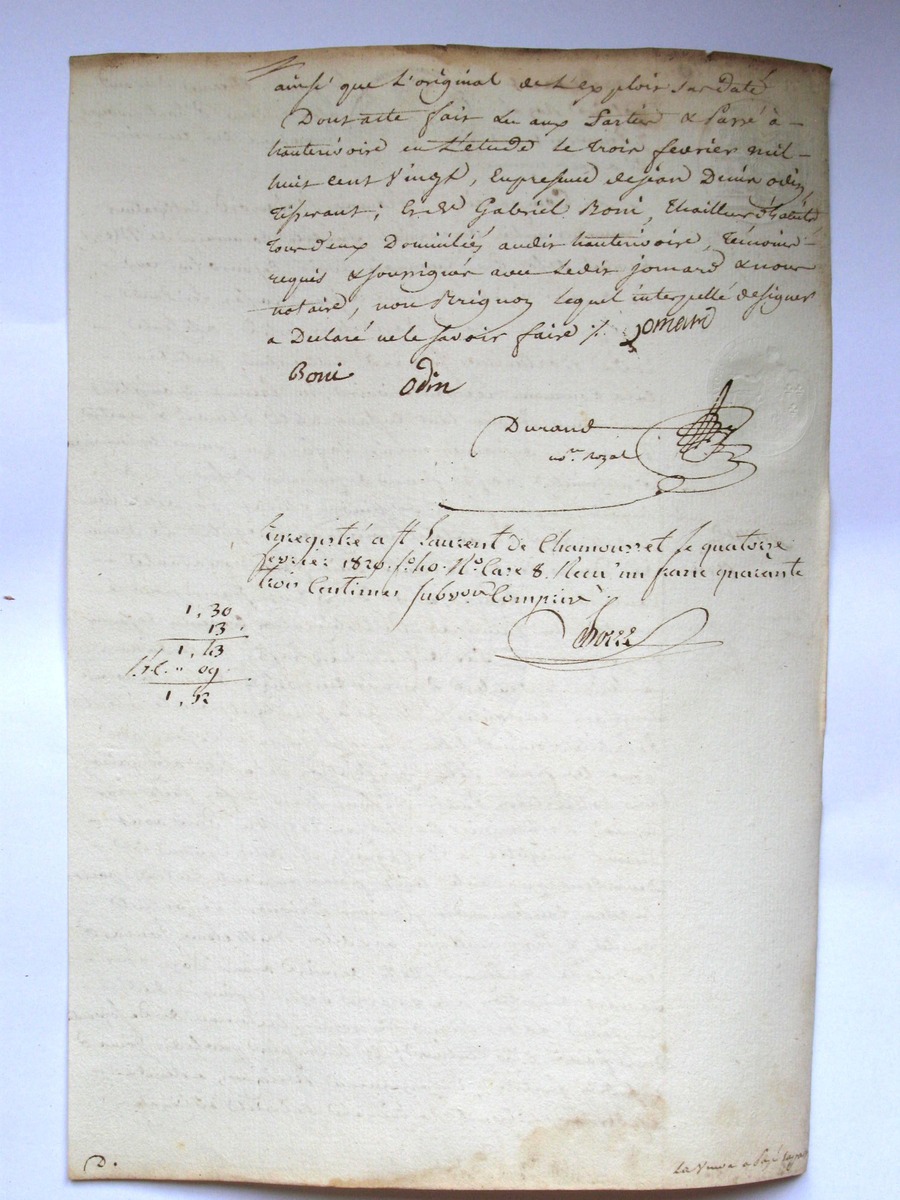 ainsi que L'original de L'exploit susdaté
Dont acte fait Lu aux Parties & Passé à
hauterivoire en L'etude le trois fevrier mil
huit cent Vingt, En presence de jean Denis odin,
Tisserant; & de Gabriel Boni, Thailleur d'habits
tous deux Domiciliés audit hauterivoire, Témoins
requis & soussignés avec Ledit jomard & nous
notaire, non Brignon lequel interpellé de signer
a Declaré ne le savoir faire ./.
Jomard
Boni
odin
Durand
no.re royal
Enregistré a St Laurent de Chamousset le quatorze
fevrier 1820. fo 40. Ro Case 8. Recu un franc quarante
trois Centimes Subvon Comprise
1,30
13.
1,43
09.
1,52
D.
La Veuve a Payé